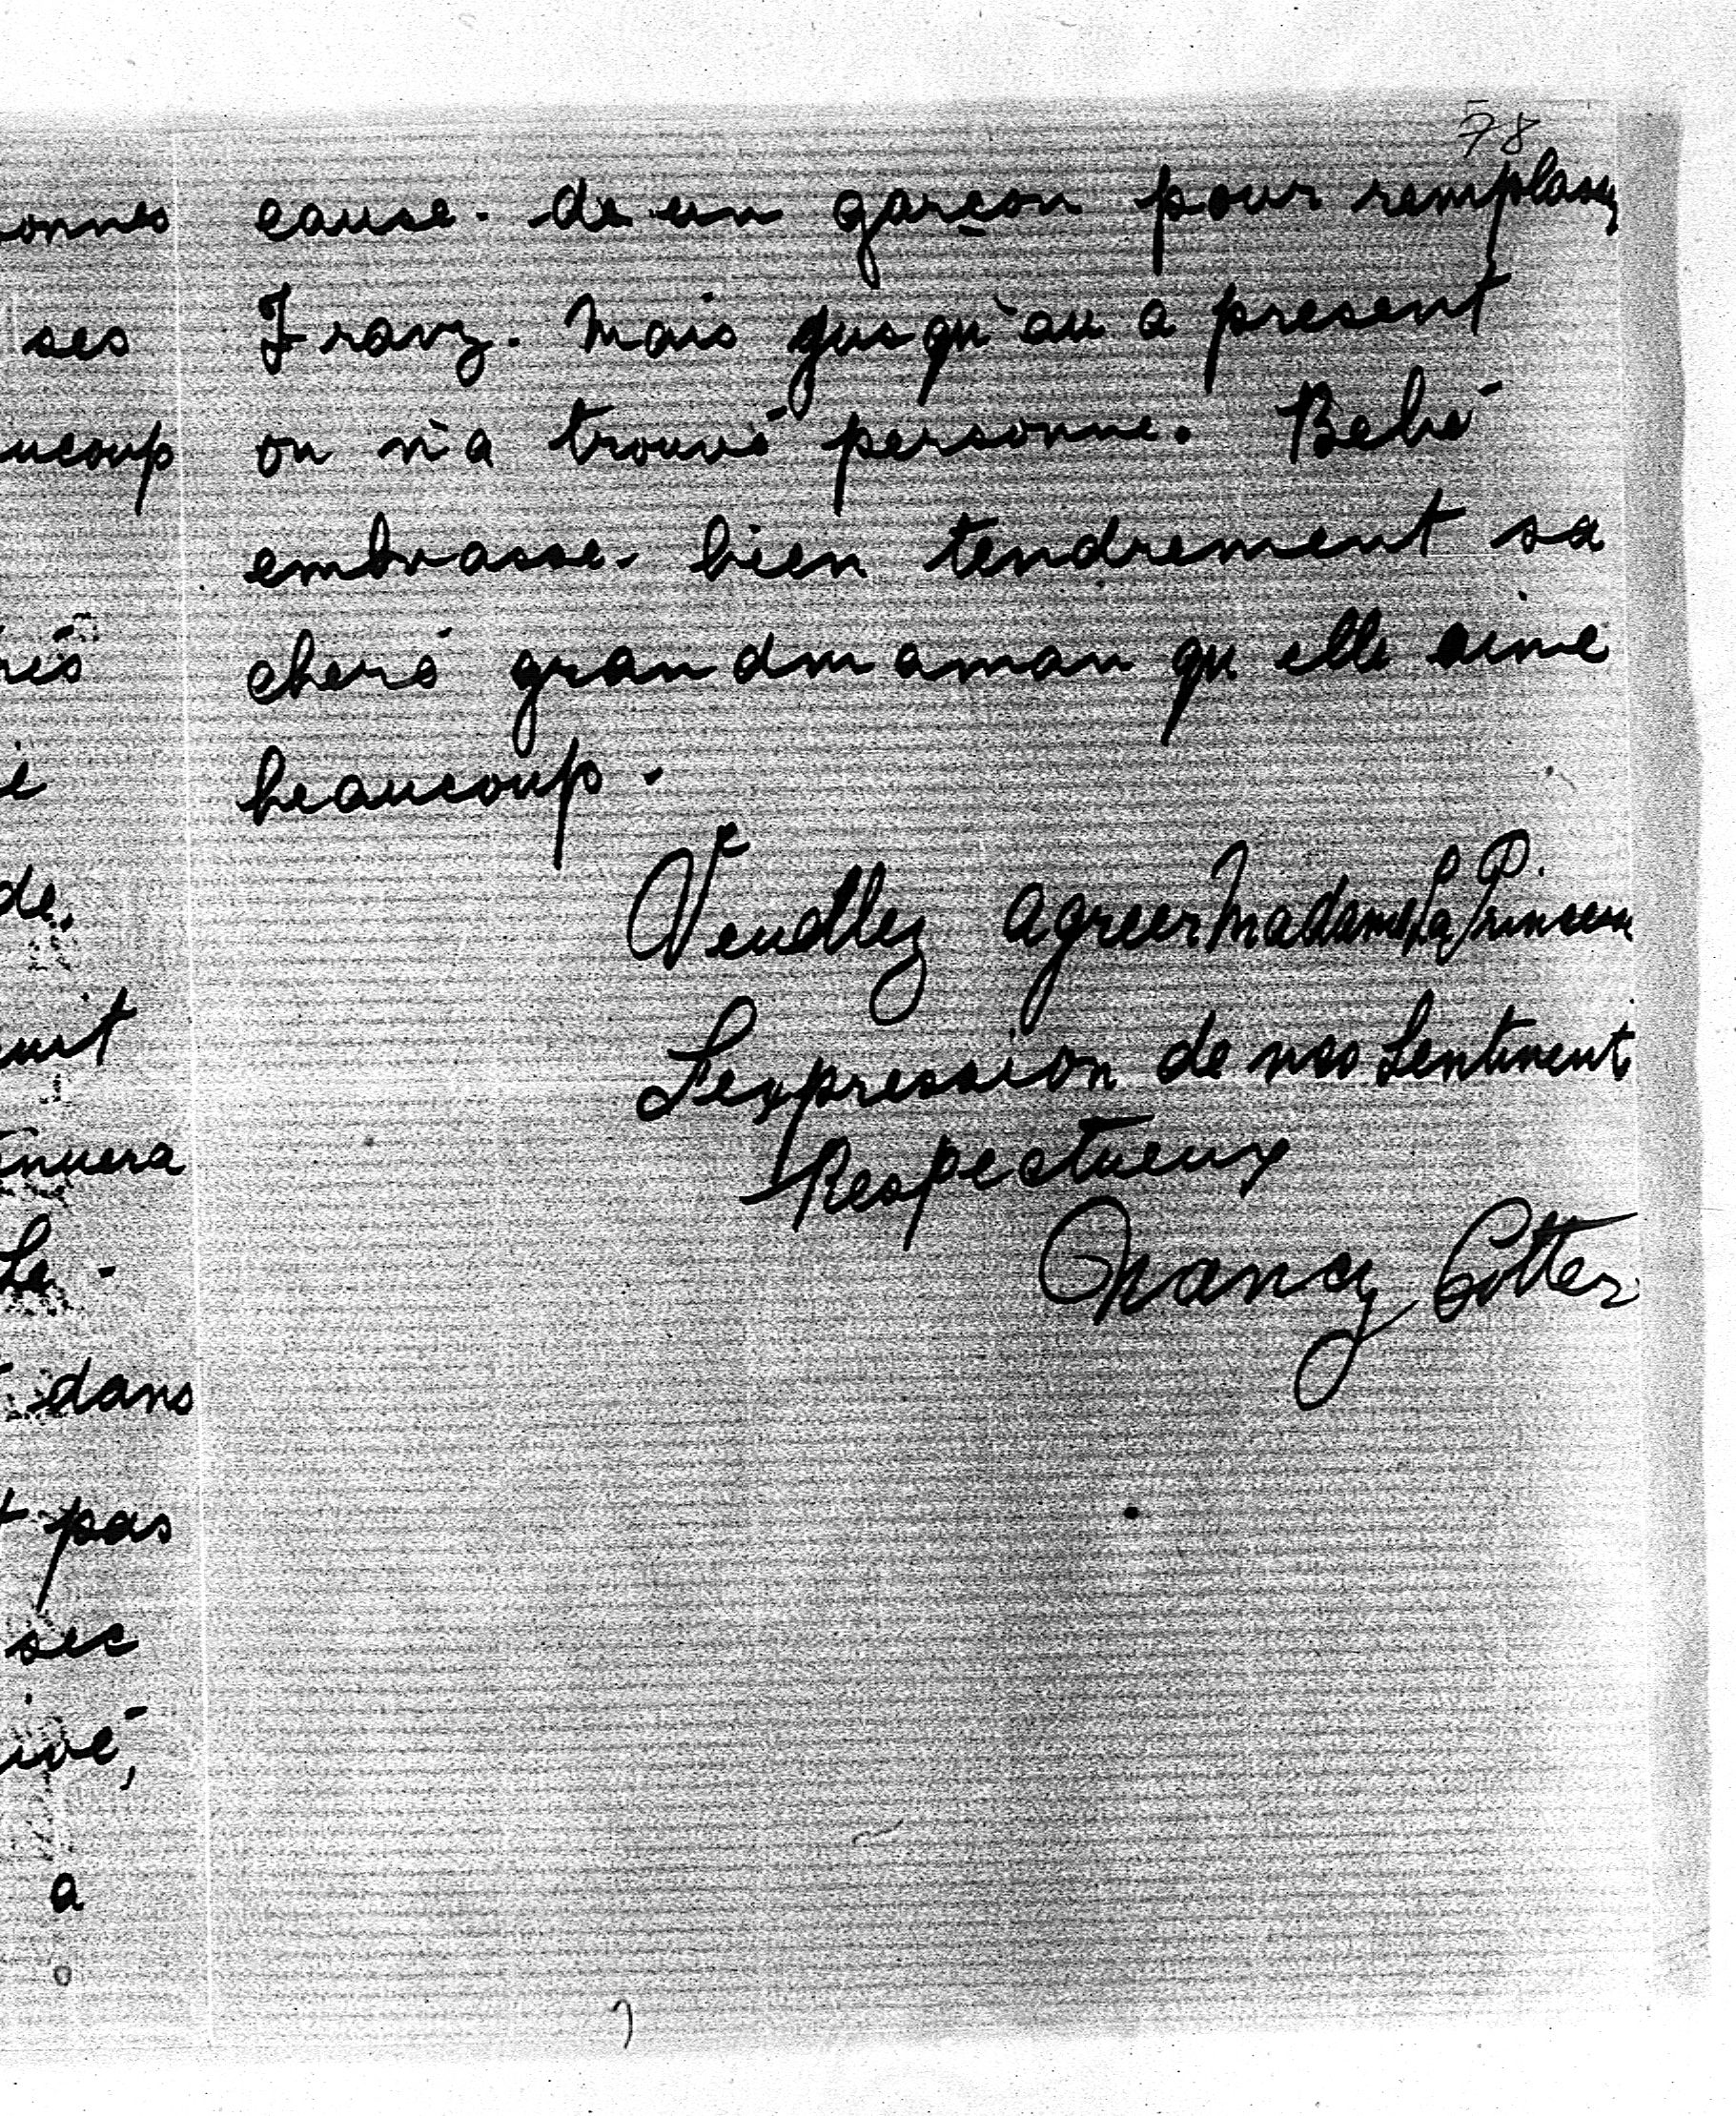 78
cause. de un garçon pour remplasez
Franz. Mais jusqu'au a present
on n'a trouvé personne. Bebé
embrasse. bien tendrement sa
cheré grandmaman qu elle aime
beaucoup.
Veudllez agreer Madame La P.
Prinsesse
L'expression de nos Sentiment
Respectueux
Nancy Cotter
onnes
ses
ucoup
de.
enuera
Le.
dans
pas
sec
ivé,
a